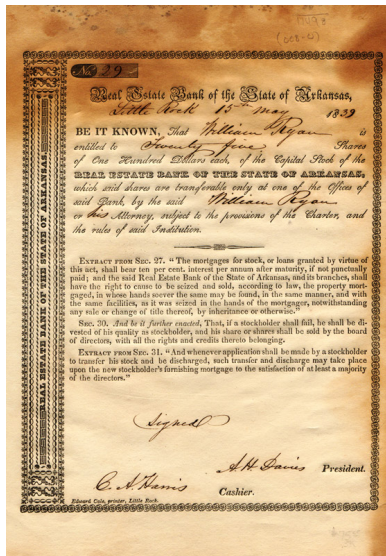 No. 29
Real Estate Bank of the State of Arkansas,
Little Rock 15th May 1839
BE IT KNOWN, That William Ryan is
entitled to Twenty five Shares
of One Hundred Dollars each, of the Capital Stock of the
REAL ESTATE BANK OF THE STATE OF ARKANSAS,
which said shares are transferable only at one of the Offices of
said Bank, by the said William Ryan
or his Attorney, subject to the provisions of the Charter, and
the rules of said Institution.
EXTRACT FROM SEC. 27. “The mortgages for stock, or loans granted by virtue of
this act, shall bear ten per cent. interest per annum after maturity, if not punctually
paid; and the said Real Estate Bank of the State of Arkansas, and its branches, shall
have the right to cause to be seized and sold, according to law, the property mort-
gaged, in whose hands soever the same may be found, in the same manner, and with
the same facilities, as it was seized in the hands of the mortgager, notwithstanding
any sale or change of title thereof, by inheritance or otherwise.”
SEC. 30. And be it further enacted, That, if a stockholder shall fail, he shall be di-
vested of his quality as stockholder, and his share or shares shall be sold by the board
of directors, with all the rights and credits thereto belonging.
EXTRACT FROM SEC. 31. “And whenever application shall be made by a stockholder
to transfer his stock and be discharged, such transfer and discharge may take place
upon the new stockholder's furnishing mortgage to the satisfaction of at least a majority
of the directors.”
Signed
A H Davies President.
C. A. Harris Cashier.
Edward Cole, printer, Little Rock.
REAL ESTATE BANK OF THE STATE OF ARKANSAS.